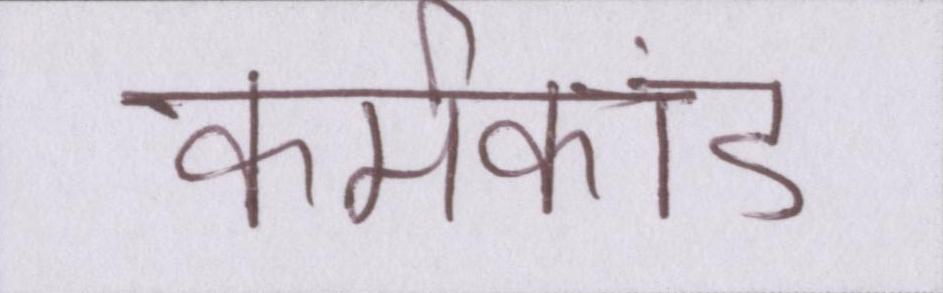 कर्मकांड